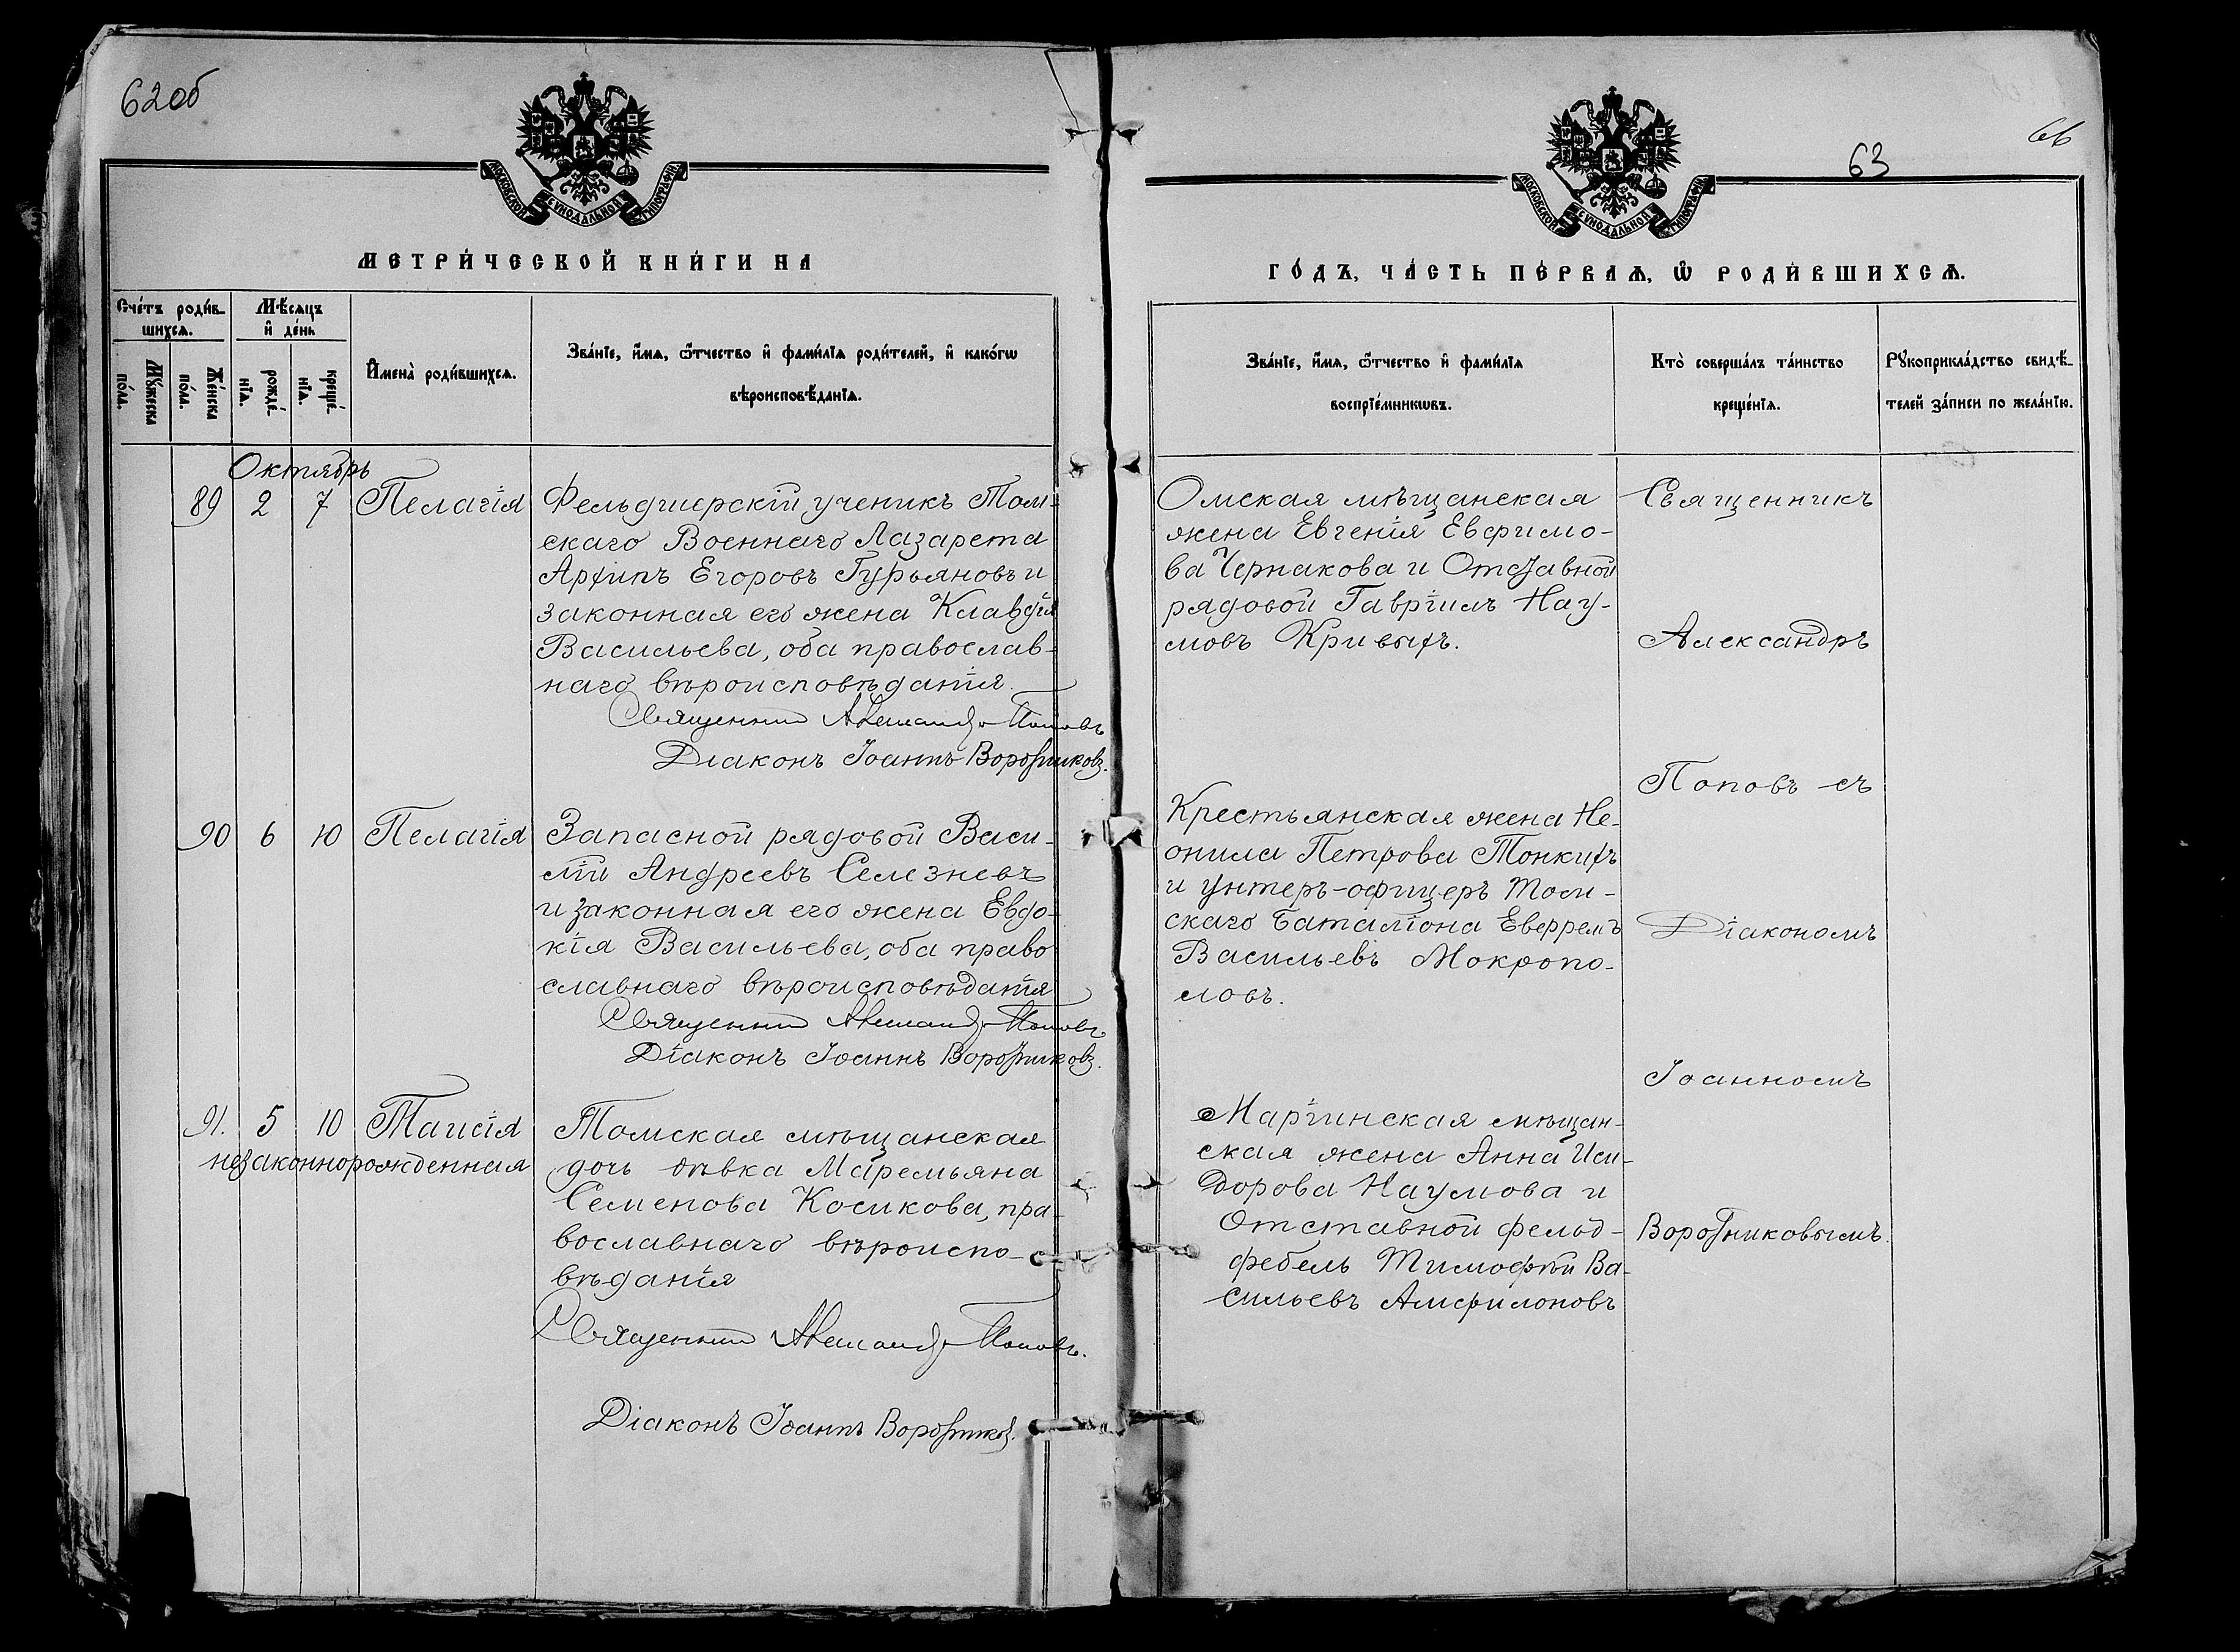 62об
МОСКОВСКОЙ СѴНОДАЛЬНОЙ ТИПОГРАФІИ
МЕТРИ́ЧЕСКОЙ КНИ́ГИ НА
Сче́тъ роди́в-
шихсѧ.
Мѣ́сѧцъ
и҆ де́нь
Мꙋ́жеска
по́ла.
Же́нска
по́ла.
рожде́-
нїѧ.
креще́-
нїѧ.
И҆мена̀ роди́вшихсѧ.
Зва́нїе, и҆́мѧ, ѻ҆́тчество и҆ фами́лїѧ роди́телей, и҆ како́гѡ
вѣроисповѣ́данїѧ.
Октябрь
89 2 7 Пелагія
Фельдшерскій ученикъ Том-
скаго Военнаго Лазарета
Архипъ Егоровъ Гурьяновъ и
законная его жена Клавдія
Васильева, оба православ-
наго вѣроисповѣданія.
Священникъ Александръ Поповъ
Діаконъ Іоаннъ Воротниковъ.
90 6 10 Пелагія
Запасной рядовой Васи-
лій Андреевъ Селезневъ
и законная его жена Евдо-
кія Васильева, оба право
славнаго вѣроисповѣданія
Священникъ Александръ Поповъ
Діаконъ Іоаннъ Воротниковъ.
91. 5 10 Таисія
незаконнорожденная
Томская мѣщанская
дочь дѣвка Маремьяна
Семенова Косикова, пра-
вославнаго вѣроиспо-
вѣданія
Священникъ Александръ Поповъ.
Діаконъ Іоаннъ Воротниковъ.
66
63
МОСКОВСКОЙ СѴНОДАЛЬНОЙ ТИПОГРАФІИ
ГО́ДЪ, ЧА́СТЬ ПЕ́РВАѦ, Ѡ҆ РОДИ́ВШИХСѦ.
Зва́нїе, и҆́мѧ, ѻ҆́тчество и҆ фами́лїѧ
воспрїе́мникѡвъ.
Кто̀ соверша́лъ та́инство
креще́нїѧ.
Рꙋкоприкла́дство свидѣ́-
телей за́писи по жела́нїю.
Омская мѣщанская
жена Евгенія Евфимо-
ва Чернакова и Отставной
рядовой Гавріилъ Нау-
мовъ Кривыхъ.
Крестьянская жена Не-
онила Петрова Тонкихъ
и унтеръ-офицеръ Том-
скаго баталіона
Васильевъ Мокропо-
ловъ.
Маріинская мѣщан-
ская жена Анна Иси-
дорова Наумова и
Отставной фельд-
фебель Тимофѣй Ва-
сильевъ Амфилоновъ
Священникъ
Александръ
Поповъ съ
Діакономъ
Іоанномъ
Воротниковымъ.